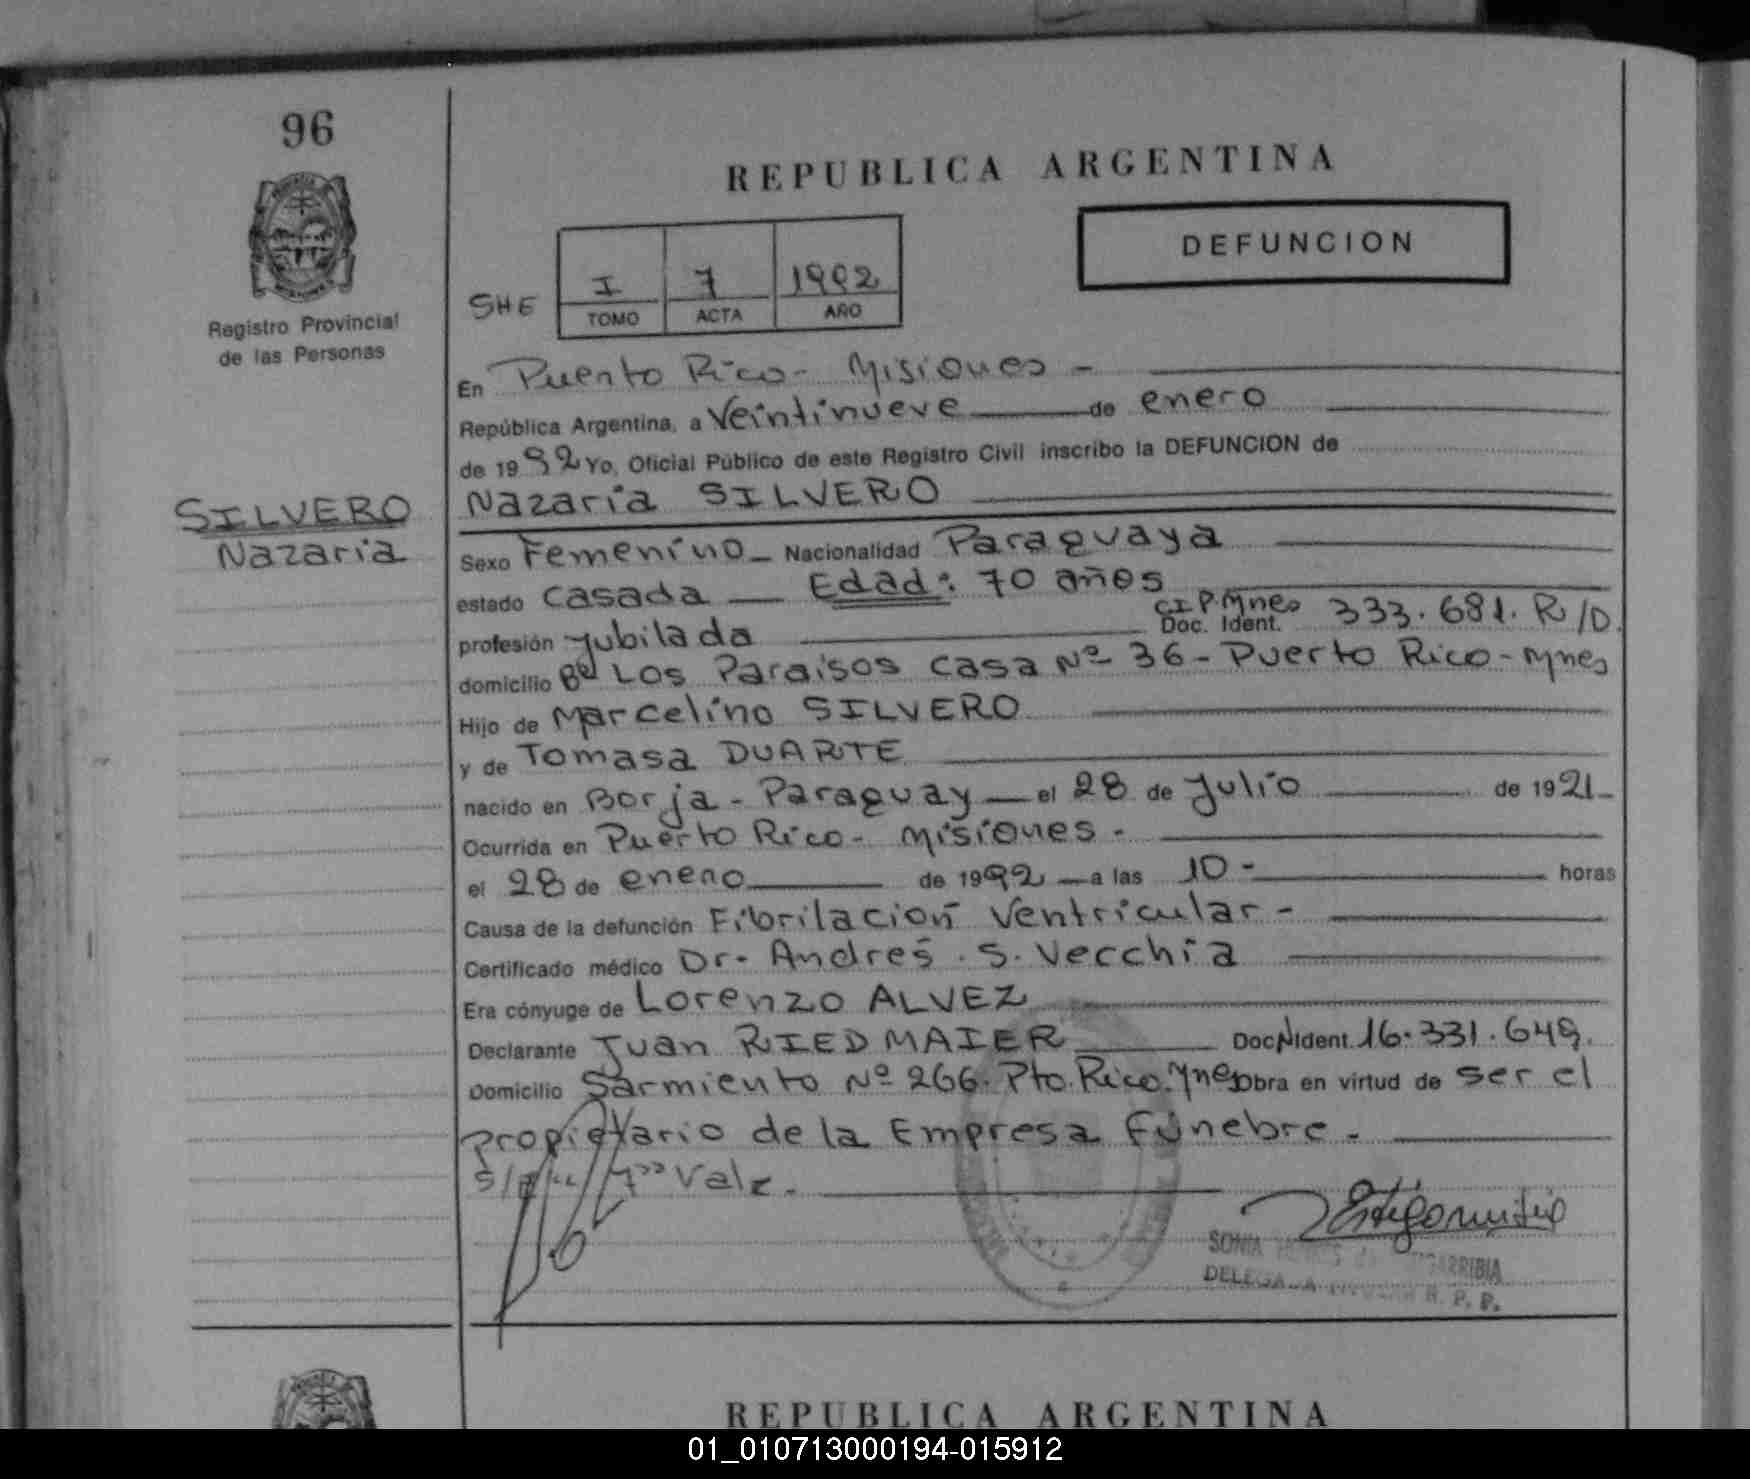 96
REPUBLICA ARGENTINA
DEFUNCION
SHE
I 7 1992
TOMO ACTA AÑO
Registro Provincial
de las Personas
En Puerto Rico - Misiones -
República Argentina, a Veintinueve de enero
de 1992 Yo, Oficial Público de este Registro Civil inscribo la DEFUNCION de
SILVERO
Nazaria
Nazaria SILVERO
Sexo Femenino - Nacionalidad Paraguaya
estado casada Edad: 70 años
profesión jubilada C.I.P. Mnes Doc. Ident. 333.681. R/D.
domicilio Bº Los Paraisos casa Nº 36 - Puerto Rico - Mnes
Hijo de Marcelino SILVERO
y de Tomasa DUARTE
nacido en Borja - Paraguay - el 28 de Julio de 1921-
Ocurrida en Puerto Rico - Misiones -
el 28 de enero de 1992 - a las 10 - horas
Causa de la defunción Fibrilación Ventricular -
Certificado médico Dr. Andrés S. Vecchia
Era cónyuge de Lorenzo ALVEZ
Declarante Juan RIEDMAIER Doc N Ident. 16.331.649.
Domicilio Sarmiento Nº 266. Pto. Rico. Mnes Obra en virtud de ser el
propietario de la Empresa Fúnebre.
7" Vale.
SONIA
DELEGADA R. P. P.
REPUBLICA ARGENTINA
01_010713000194-015912